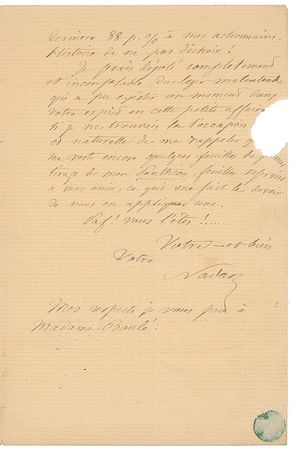 dernière 88 p. % à mes actionnaires.
Histoire de ne pas déchoir !
Je serais désolé complètement
et inconsolable du léger malentendu
qui a pu exister un moment dans
votre esprit en cette petite affaire
si je ne trouvais là l'occasion
naturelle de me rappeler
me reste encore quelques feuilles du
tirage de mon Panthéon, feuilles réservées
à mes amis, ce qui me fait le devoir
de vous en appliquer une.
Paf ! vous l'êtes !....
Votre — et bien
Votre
Nadar
Mes respects je vous prie à
Madame Boulé.